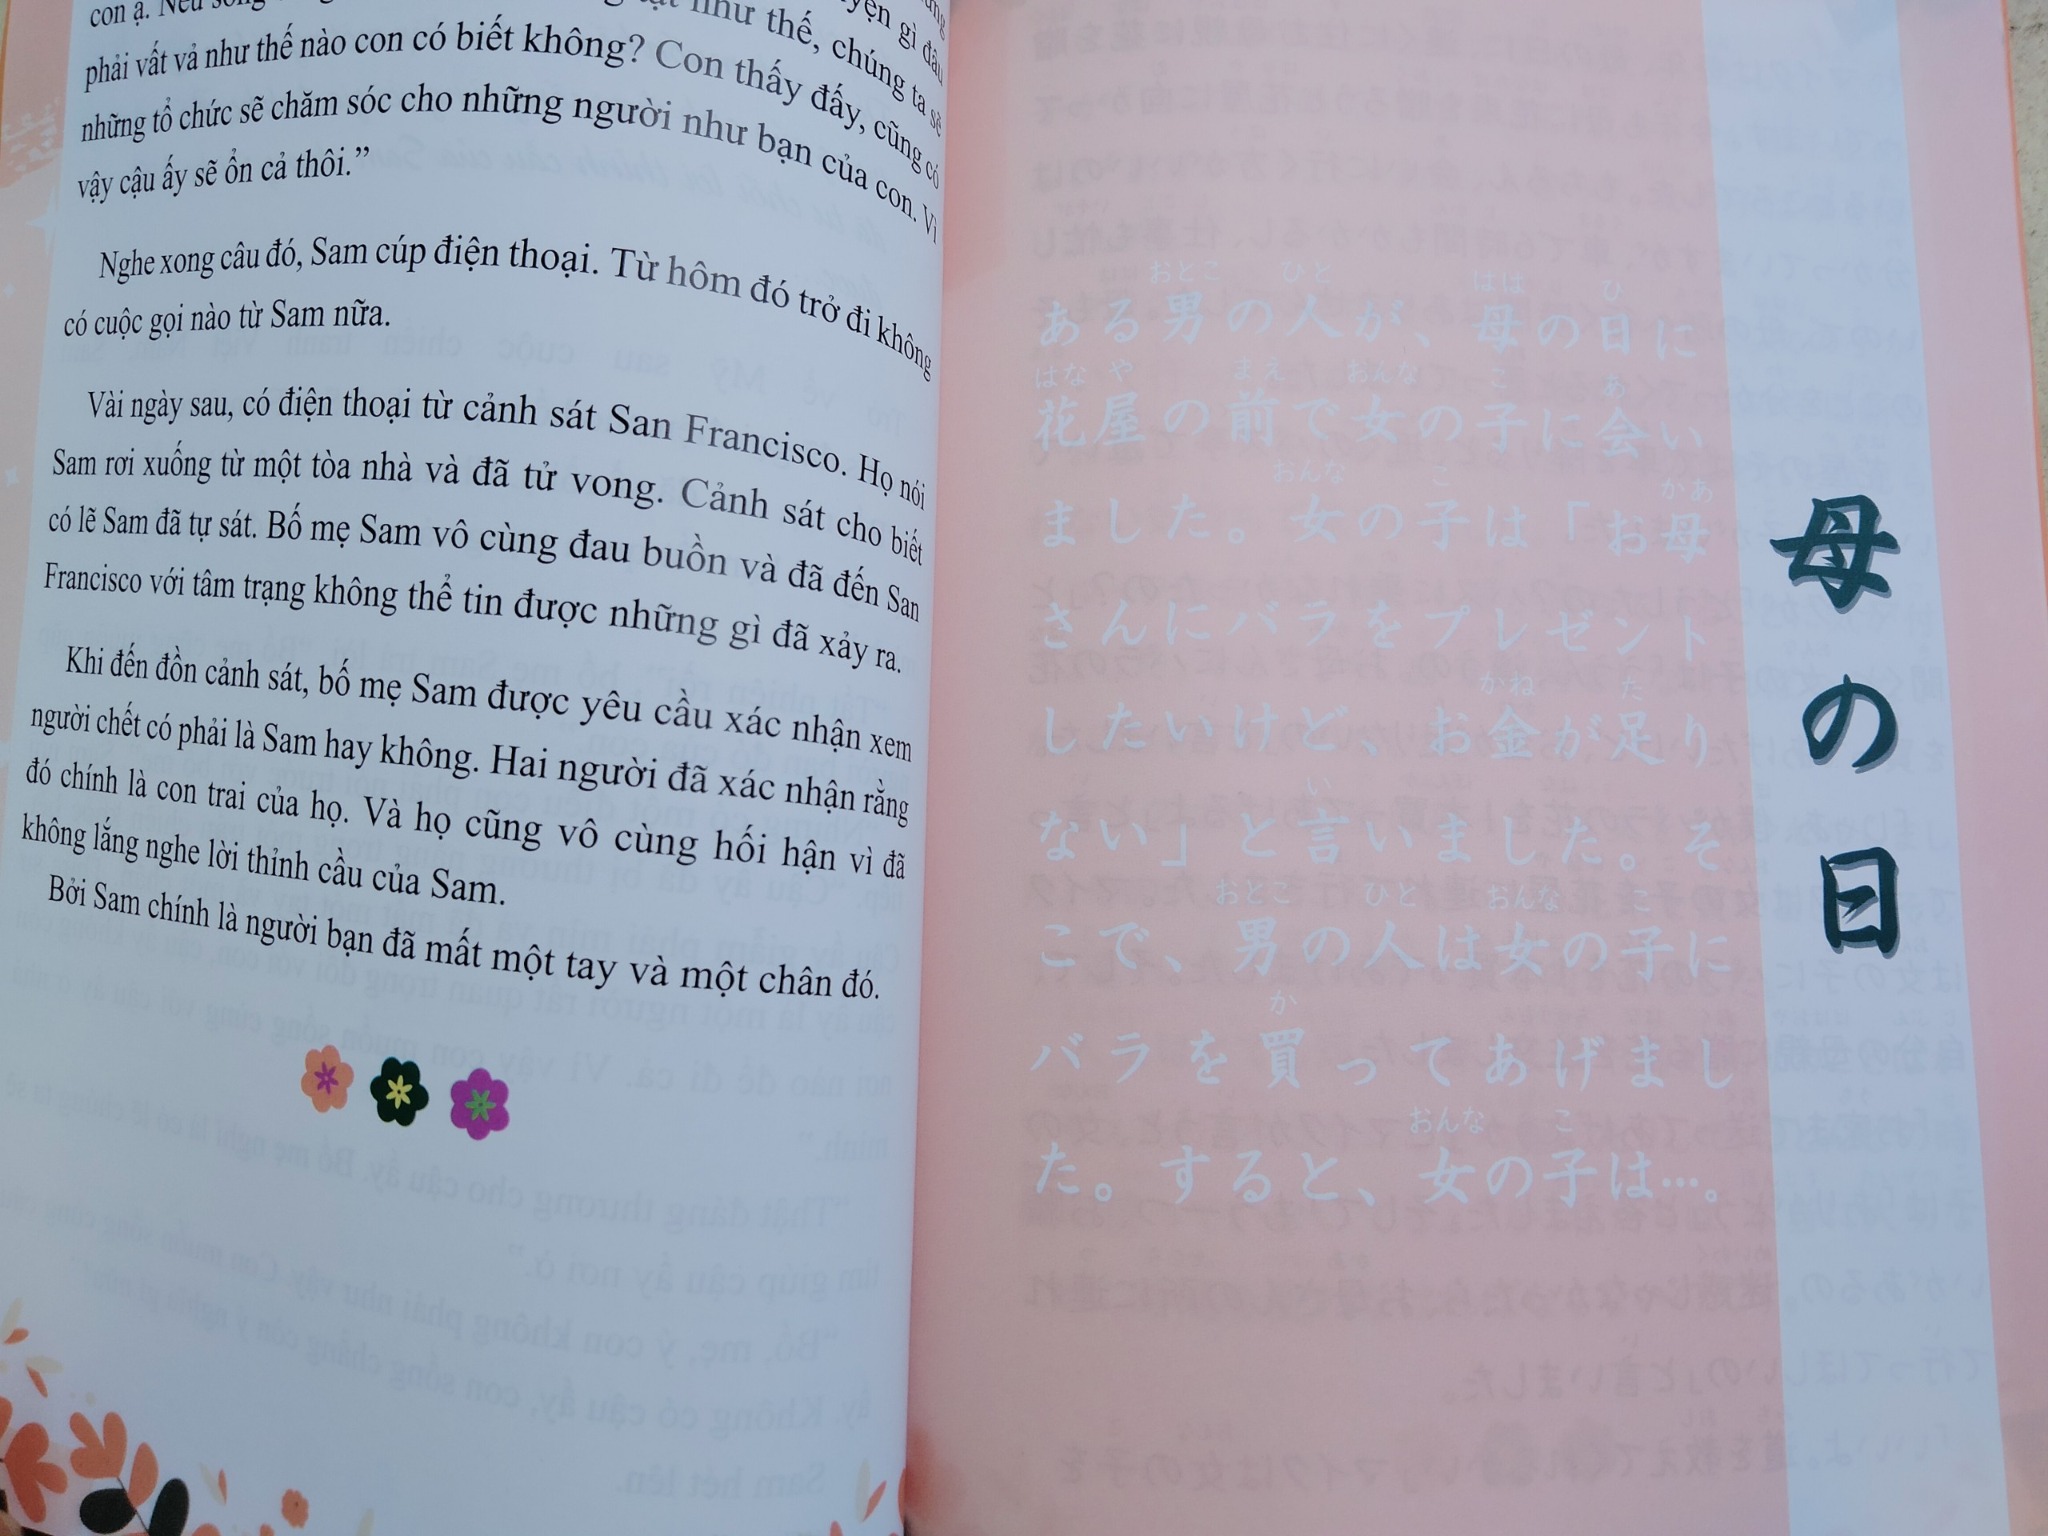 con ạ. Nếu
yện gì đâu
như thế, chúng ta sẽ
phải vất vả như thế nào con có biết không? Con thấy đấy, cũng có
những tổ chức sẽ chăm sóc cho những người như bạn của con. Vì
vậy cậu ấy sẽ ổn cả thôi.”
Nghe xong câu đó, Sam cúp điện thoại. Từ hôm đó trở đi không
có cuộc gọi nào từ Sam nữa.
Vài ngày sau, có điện thoại từ cảnh sát San Francisco. Họ nói
Sam rơi xuống từ một tòa nhà và đã tử vong. Cảnh sát cho biết
có lẽ Sam đã tự sát. Bố mẹ Sam vô cùng đau buồn và đã đến San
Francisco với tâm trạng không thể tin được những gì đã xảy ra.
Khi đến đồn cảnh sát, bố mẹ Sam được yêu cầu xác nhận xem
người chết có phải là Sam hay không. Hai người đã xác nhận rằng
đó chính là con trai của họ. Và họ cũng vô cùng hối hận vì đã
không lắng nghe lời thỉnh cầu của Sam.
Bởi Sam chính là người bạn đã mất một tay và một chân đó.
母の日
おとこ ひと はは ひ
ある男の人が、母の日に
はな や まえ おんな こ あ
花屋の前で女の子に会い
おんな こ かあ
ました。女の子は「お母
さんにバラをプレゼント
かね た
したいけど、お金が足り
い
ない」と言いました。そ
おとこ ひと おんな こ
こで、男の人は女の子に
か
バラを買ってあげまし
おんな こ
た。すると、女の子は…。